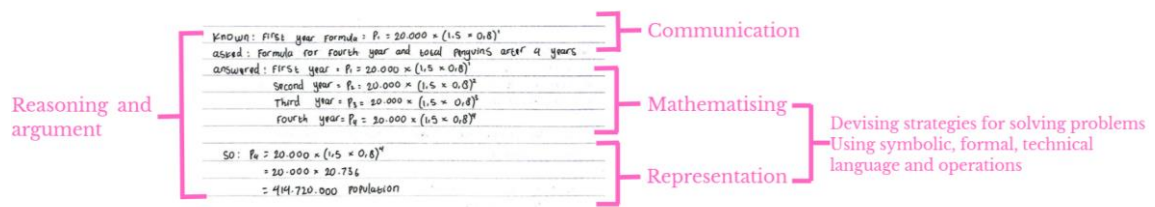 Known : First year Formula = P₁ = 20.000 × (1.5 × 0,8)¹
asked : Formula for fourth year and total penguins after 4 years
answered : First year = P₁ = 20.000 × (1,5 × 0,8)¹
Second year = P₂ = 20.000 × (1,5 × 0,8)²
Third year = P₃ = 20.000 × (1,5 × 0,8)²
Fourth year = P₄ = 20.000 × (1,5 × 0,8)⁴
SO : P₄ = 20.000 × (1,5 × 0,8)⁴
= 20.000 × 20.736
= 414.720.000 Population
Reasoning and
argument
Communication
Mathematising
Representation
Devising strategies for solving problems
Using symbolic, formal, technical
language and operations